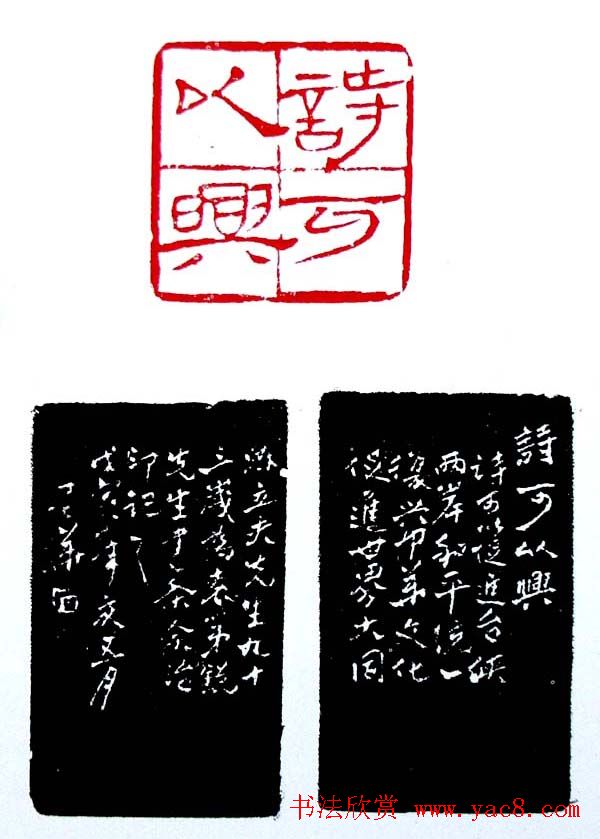 詩可
以興
詩可以興
詩可以促進台峽
兩岸和平統一
復興中華文化
促進世界大同
陳立夫先生九十
三歲為
先生書 余治
印記之
戊寅年 五月
书法欣赏 www.yac8.com